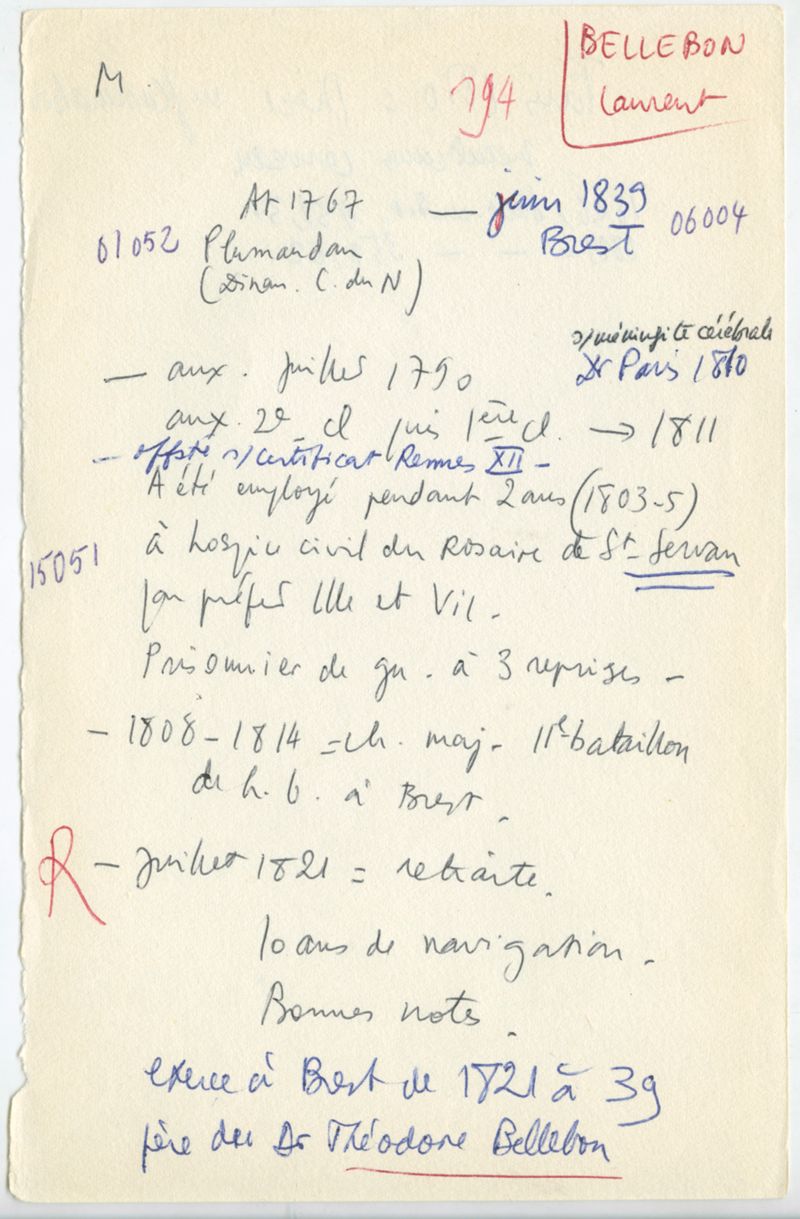 M.
BELLEBON
Laurent
194
At 1767 — juin 1839
Brest 06004
01052 Plumaudan
(Dinan. C. du N)
s/méningite cérébrale
Dr Paris 1810
— aux. juillet 1790
aux. 2e cl puis 1ère cl. → 1811
— offsté s/certificat Rennes XII —
A été employé pendant 2 ans (1803-5)
15051 à hospice civil du Rosaire de St-Servan
par préfet Ille et Vil.
Prisonnier de gu. à 3 reprises —
— 1808-1814 = ch. maj. 11e bataillon
de h. b. à Brest.
R — Juillet 1821 = retraite.
10 ans de navigation.
Bonnes notes.
exerce à Brest de 1821 à 39
père du Dr Théodore Bellebon